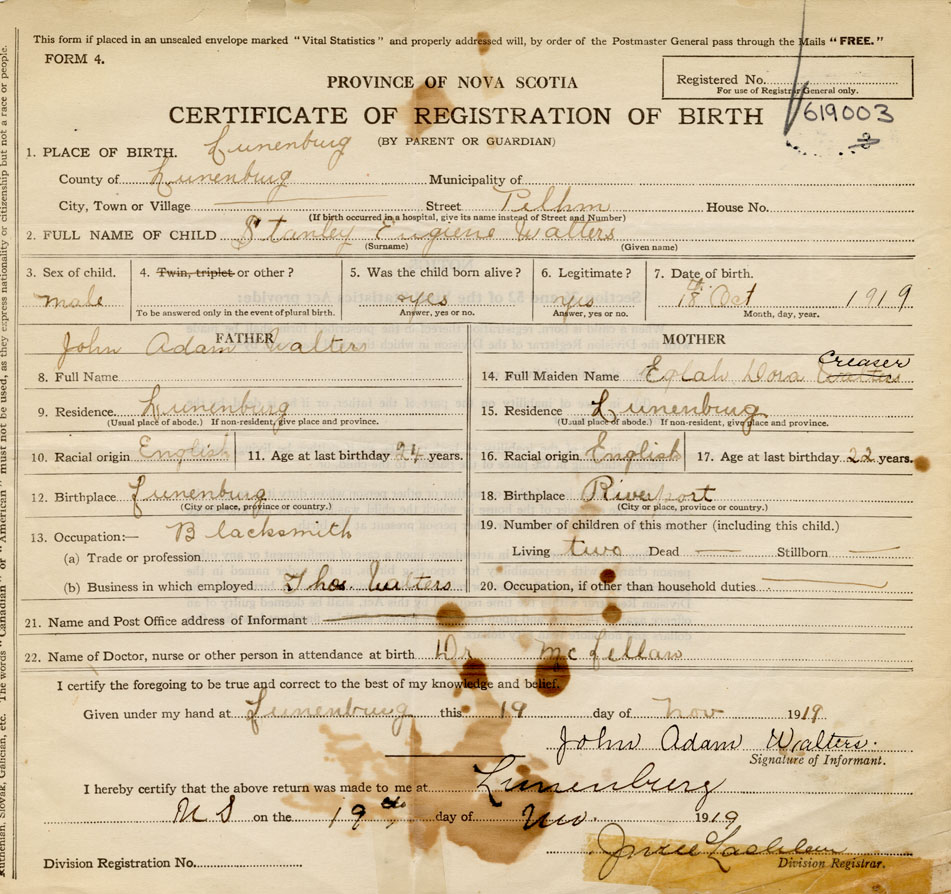 This form if placed in an unsealed envelope marked "Vital Statistics" and properly addressed will, by order of the Postmaster General pass through the Mails "FREE."
FORM 4.
PROVINCE OF NOVA SCOTIA
Registered No.
For use of Registrar General only.
CERTIFICATE OF REGISTRATION OF BIRTH
619003
(BY PARENT OR GUARDIAN)
1. PLACE OF BIRTH. Lunenburg
County of Lunenburg Municipality of
City, Town or Village Street Pelhm House No.
(If birth occurred in a hospital, give its name instead of Street and Number)
2. FULL NAME OF CHILD Stanley Eugiene Walters
(Surname) (Given name)
3. Sex of child. 4. Twin, triplet or other? 5. Was the child born alive? 6. Legitimate? 7. Date of birth.
male yes yes 18th Oct 1919
To be answered only in the event of plural birth. Answer, yes or no. Answer, yes or no. Month, day, year.
FATHER MOTHER
John Adam Walters
8. Full Name 14. Full Maiden Name Eglah Dora Walters Creaser
9. Residence Lunenburg 15. Residence Lunenburg
(Usual place of abode.) If non-resident, give place and province. (Usual place of abode.) If non-resident, give place and province.
10. Racial origin English 11. Age at last birthday 24 years. 16. Racial origin English 17. Age at last birthday 22 years.
12. Birthplace Lunenburg 18. Birthplace Riverport
(City or place, province or country.) (City or place, province or country.)
13. Occupation:— Blacksmith 19. Number of children of this mother (including this child.)
(a) Trade or profession Living two Dead — Stillborn —
(b) Business in which employed Thos. Walters 20. Occupation, if other than household duties
21. Name and Post Office address of Informant
22. Name of Doctor, nurse or other person in attendance at birth. Dr
I certify the foregoing to be true and correct to the best of my knowledge and belief.
Given under my hand at Lunenburg this 19 day of Nov 1919
John Adam Walters.
Signature of Informant.
I hereby certify that the above return was made to me at Lunenburg
N S on the 19th day of Nov. 1919
Division Registration No. Division Registrar.